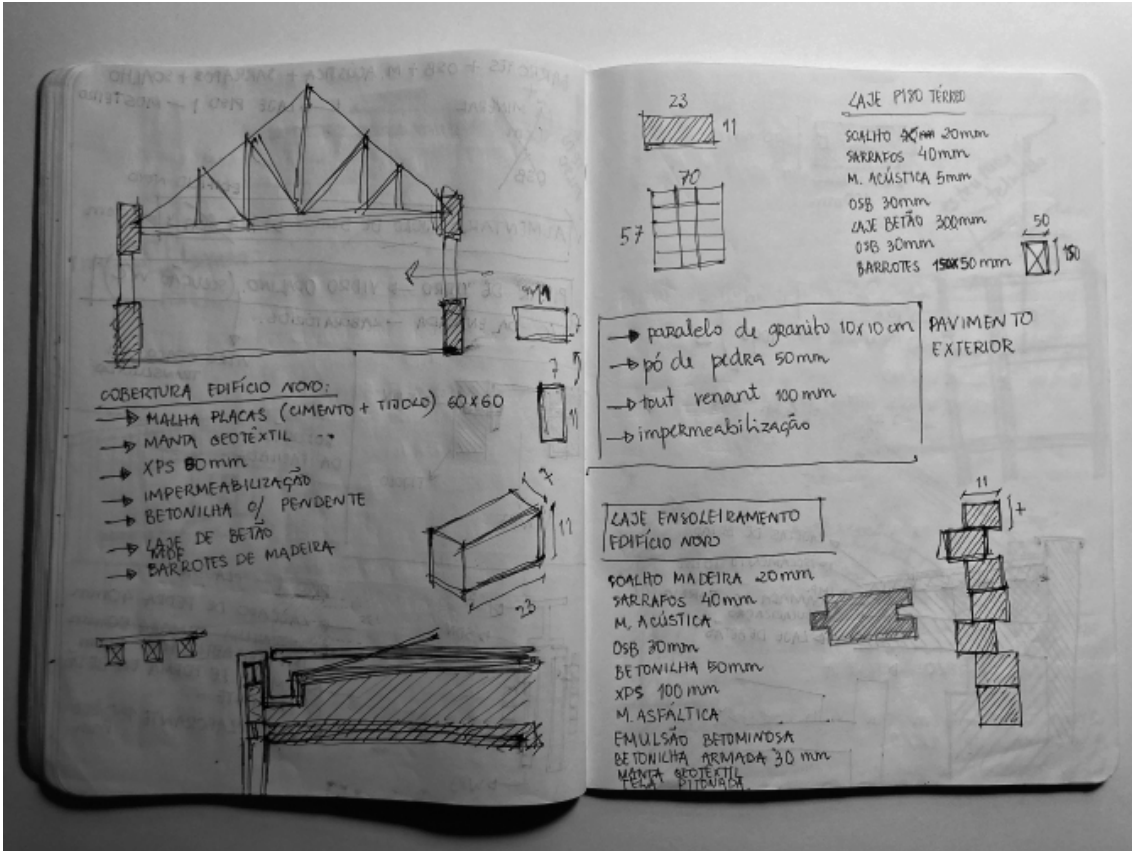 7
7
11
COBERTURA EDIFÍCIO NOVO:
→ MALHA PLACAS (CIMENTO + TIJOLO) 60X60
→ MANTA GEOTÊXTIL
→ XPS 80mm
→ IMPERMEABILIZAÇÃO
→ BETONILHA C/ PENDENTE
→ LAJE DE BETÃO
MDF
→ BARROTES DE MADEIRA
7
11
23
23
11
70
57
LAJE PISO TÉRREO
SOALHO 20mm
SARRAFOS 40mm
M. ACÚSTICA 5mm
OSB 30mm
LAJE BETÃO 300mm
OSB 30mm
BARROTES 150X50mm
50
150
→ paralelo de granito 10x10 cm
→ pó de pedra 50mm
→ tout venant 100mm
→ impermeabilização
PAVIMENTO
EXTERIOR
LAJE ENSOLEIRAMENTO
EDIFÍCIO NOVO
SOALHO MADEIRA 20mm
SARRAFOS 40mm
M. ACÚSTICA
OSB 30mm
BETONILHA 50mm
XPS 100mm
M. ASFÁLTICA
EMULSÃO BETOMINOSA
BETONILHA ARMADA 30 mm
MANTA GEOTÊXTIL
TELA PITONADA
11
7